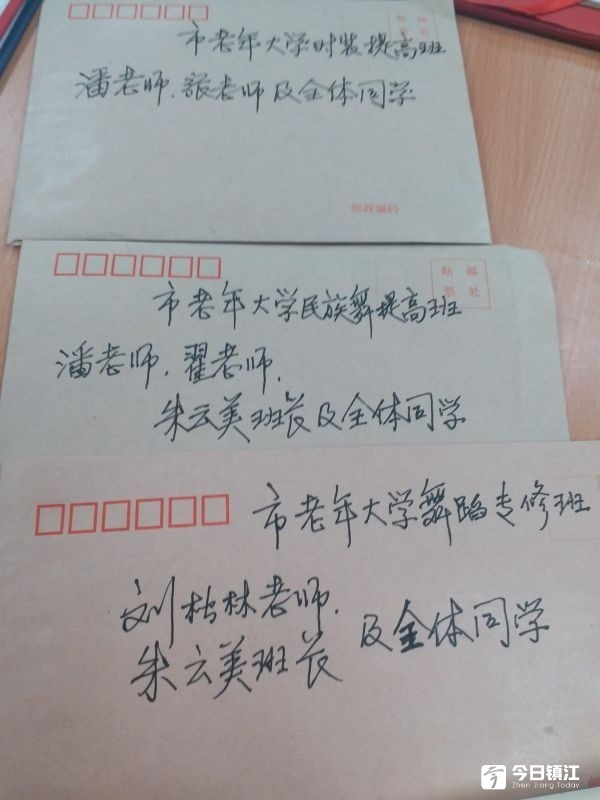 贴 邮
票 处
市老年大学时装提高班
潘老师、张老师及全体同学
邮政编码
贴 邮
票 处
市老年大学民族舞提高班
潘老师、翟老师、
朱云美班长及全体同学
市老年大学舞蹈专修班
刘松林老师、
朱云美班长 及全体同学
邮
今日镇江
Zhen Jiang Today